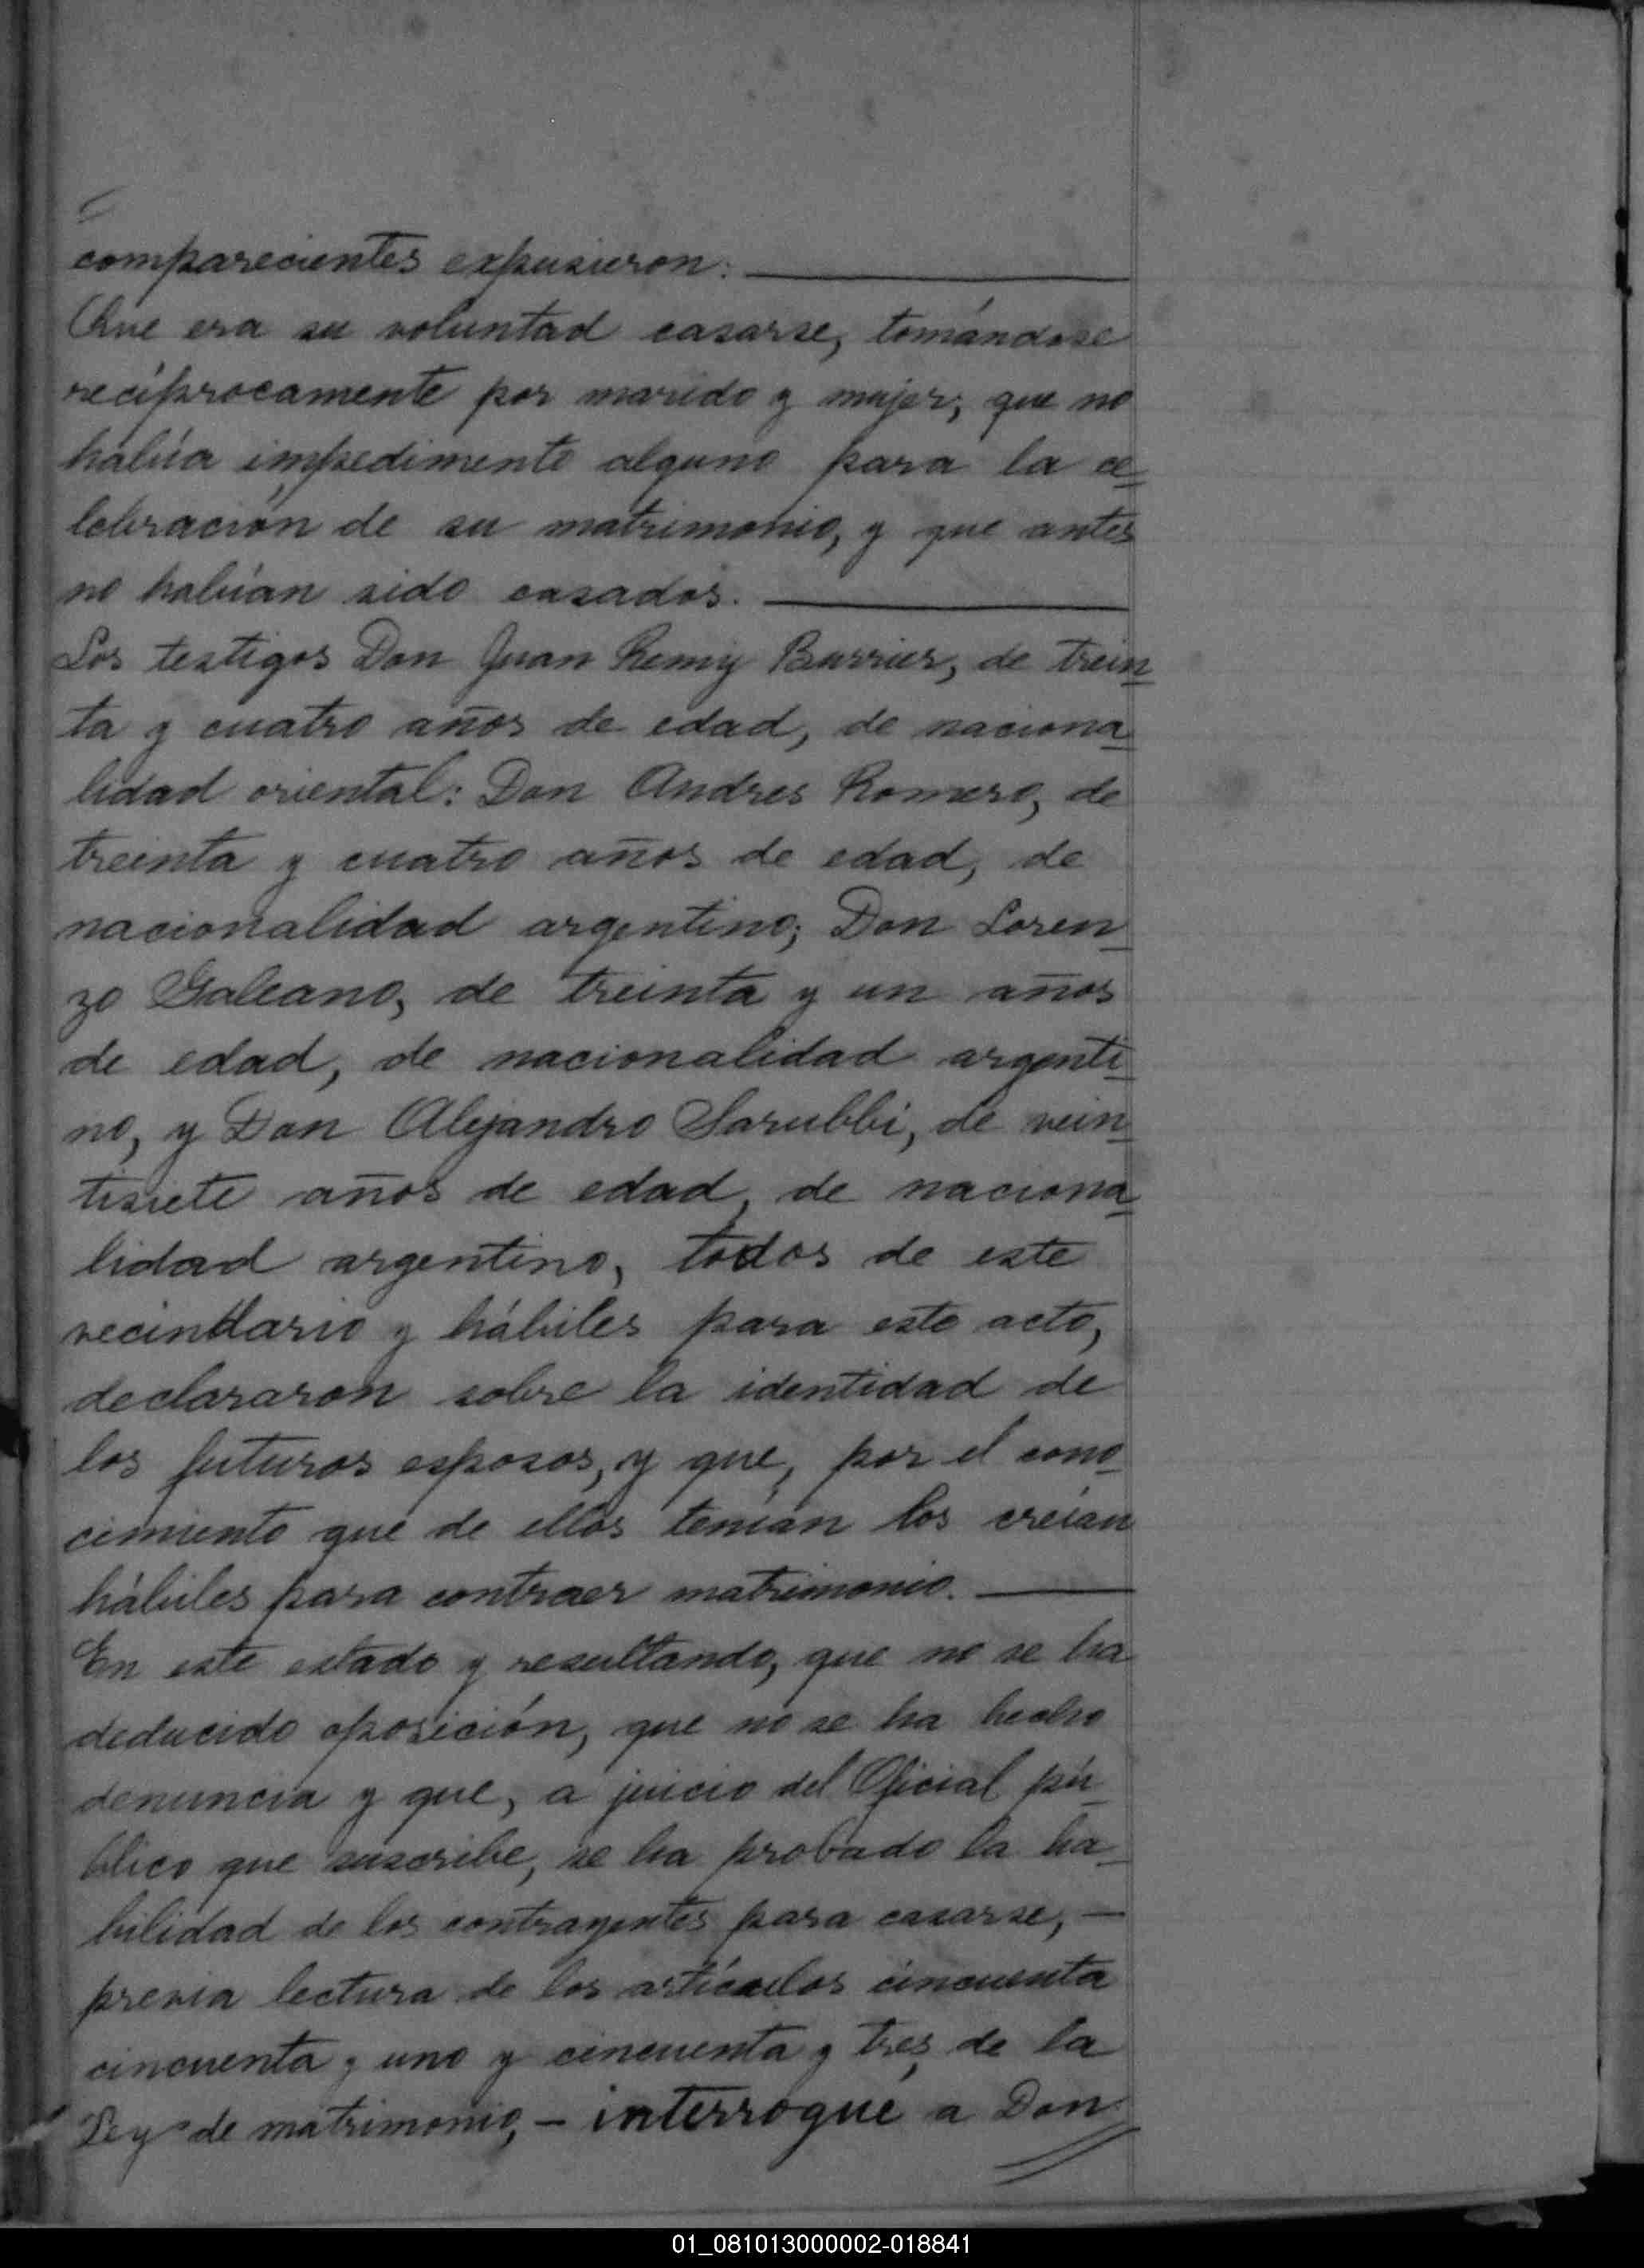 comparecientes expusieron:
Que era su voluntad casarse, tomándose
recíprocamente por marido y mujer; que no
había impedimento alguno para la ce-
lebración de su matrimonio, y que antes
no habían sido casados.
Los testigos Don Juan Remy Barrier, de trein-
ta y cuatro años de edad, de naciona-
lidad oriental: Don Andres Romero, de
treinta y cuatro años de edad, de
nacionalidad argentino; Don Loren-
zo Galeano, de treinta y un años
de edad, de nacionalidad argenti-
no, y Don Alejandro Sarubbi, de vein-
tisiete años de edad, de naciona-
lidad argentino, todos de este
vecindario y hábiles para este acto,
declararon sobre la identidad de
los futuros esposos, y que, por el cono-
cimiento que de ellos tenían los creían
hábiles para contraer matrimonio.
En este estado y resultando, que no se ha
deducido oposición, que no se ha hecho
denuncia y que, a juicio del Oficial pú-
blico que suscribe, se ha probado la ha-
bilidad de los contrayentes para casarse, —
previa lectura de los artículos cincuenta
cincuenta y uno y cincuenta y tres de la
Ley de matrimonio, — interrogué a Don
01_081013000002-018841